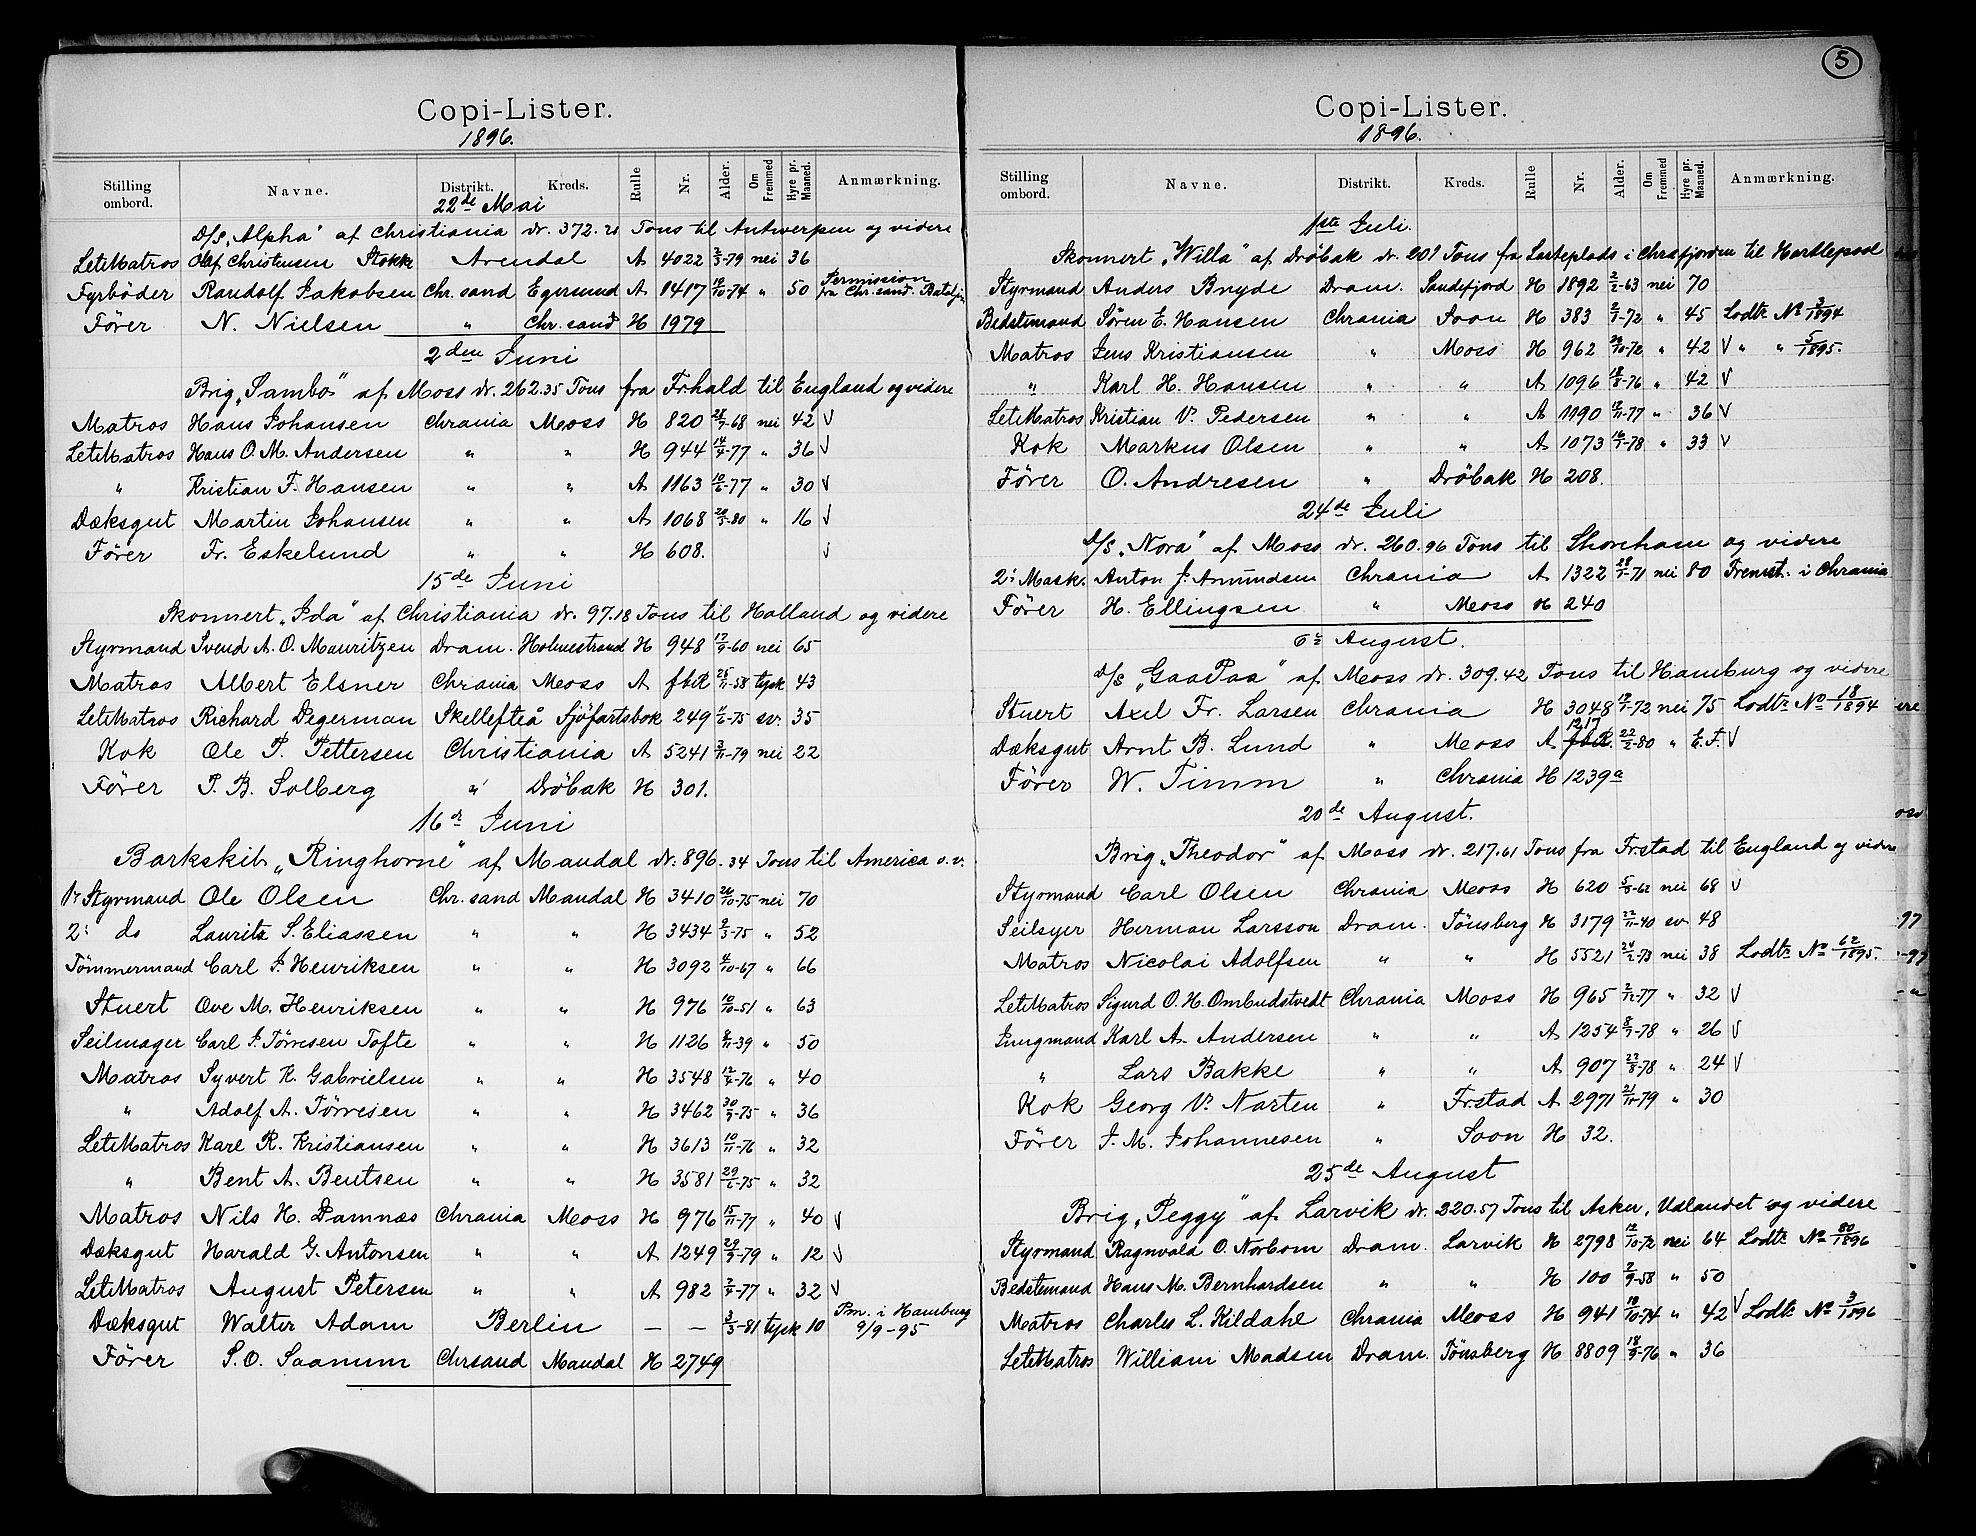 Copi-Lister.
1896.
Stilling ombord. Navne. Distrikt. Kreds. Rulle Nr. Alder. Om Fremmed Hyre pr. Maaned. Anmærkning.
22de Mai
D/S „Alpha" af Christiania dr. 372.21 Tons til Antwerpen og videre
LetMatros Olaf Christensen Stokk Arendal A 4022 2/3-79 nei 36
Fyrbøder Randolf Jakobsen Chr.sand Egersund A 1417 19/10-74 " 50 Permission fra Chr.sand. Bataljn
Fører N. Nielsen " Chr.sand H 1979
2den Juni
Brig „Sambo" af Moss dr. 262.35 Tons fra Frhald til England og videre
Matros Hans Johansen Chrania Moss H 820 28/7-68 nei 42 V
LetMatros Hans O. M. Andersen " " H 944 14/4-77 " 36 V
" Kristian F. Hansen " " A 1163 10/6-77 " 30 V
Dæksgut Martin Johansen " " A 1068 29/5-80 " 16 V
Fører Fr. Eskelund " " H 608. V
15de Juni
Skonnert „Ida" af Christiania dr. 97.18 Tons til Holland og videre
Styrmand Svend A. O. Mauritzen Dram. Holmestrand H 948 17/9-60 nei 65
Matros Albert Elsner Chrania Moss A fbR 25/11-58 tysk 43
LetMatros Richard Degerman Skellefteå Sjöfartsbok 249 11/6-75 sv. 35
Kok Ole P. Pettersen Christiania A 5241 3/11-79 nei 22
Fører P. B. Solberg " Drøbak H 301.
16de Juni
Barkskib „Ringhorne" af Mandal dr. 896.34 Tons til America o.v.
1r Styrmand Ole Olsen Chr.sand Mandal H 3410 26/10-75 nei 70
2: do Lauritz S. Eliassen " " H 3434 9/3-75 " 52
Tømmermand Carl J. Henriksen " " H 3092 4/10-67 " 66
Stuert Ove M. Henriksen " " H 976 10/10-51 " 63
Seilmager Carl J. Tørresen Tofte " " H 1126 8/11-39 " 50
Matros Syvert K. Gabrielsen " " H 3548 12/4-76 " 40
" Adolf A. Tørresen " " H 3462 30/9-75 " 36
LetMatros Karl R. Kristiansen " " H 3613 10/11-76 " 32
" Bent A. Bentsen " " H 3581 29/6-75 " 32
Matros Nils H. Damnæs Chrania Moss H 976 15/11-77 " 40 V
Dæksgut Harald G. Antonsen " " A 1249 29/9-79 " 12 V
LetMatros August Petersen " " A 982 2/4-77 " 32 V
Dæksgut Walter Adam Berlin — — 3/3-81 tysk 10 Pm. i Hamburg 9/9-95
Fører S. O. Saanum Chrsand Mandal H 2749
5
Copi-Lister.
1896.
Stilling ombord. Navne. Distrikt. Kreds. Rulle Nr. Alder. Om Fremmed Hyre pr. Maaned. Anmærkning.
1ste Juli.
Skonnert „Willa" af Drøbak dr. 201 Tons fra Lasteplads i Chrafjorden til Hartlepool
Styrmand Anders Bryde Dram. Sandefjord H 1892 2/2-63 nei 70
Bedstemand Søren E. Hansen Chrania Soon H 383 2/1-72 " 45 Lodtr No 3/1894
Matros Jens Kristiansen " Moss H 962 29/10-72 " 42 V " " 5/1895.
" Karl H. Hansen " " A 1096 18/8-76 " 42 V
LetMatros Kristian V. Pedersen " " A 1190 12/11-77 " 36 V
Kok Markus Olsen " " A 1073 16/1-78 " 33 V
Fører O. Andresen " Drøbak H 208.
24de Juli
D/S „Nora" af Moss dr. 260.96 Tons til Shoreham og videre
2: Mask. Anton J. Amundsen Chrania A 1322 28/1-71 nei 80 Fremst. i Chrania
Fører H. Ellingsen " Moss H 240
6te August.
D/S „GaaPaa" af Moss dr. 309.42 Tons til Hamburg og videre
Stuert Axel Fr. Larsen Chrania H 3048 12/1-72 nei 75 Lodtr No 18/1894
Dæksgut Arnt B. Lund " Moss A fbR. 1217 22/2-80 " E.F. V
Fører W. Timm " Chrania H 1239a
20de August.
Brig „Theodor" af Moss dr. 217.61 Tons fra Frstad til England og videre
Styrmand Carl Olsen Chrania Moss H 620 5/8-62 nei 68 V
Seilsyer Herman Larsson Dram. Tønsberg H 3179 22/11-40 sv 48
Matros Nicolai Adolfsen " " H 5521 24/2-73 nei 38 Lodtr No 62/1895.
LetMatros Sigurd O. H. Ombudstvedt Chrania Moss H 965 2/12-77 " 32 V
Jungmand Karl A. Andersen " " A 1254 8/7-78 " 26 V
" Lars Bakke " " A 907 27/8-78 " 24 V
Kok Georg V. Narten " Frstad A 2971 21/11-79 " 30
Fører J. M. Johannesen " Soon H 32.
25de August
Brig „Peggy" af Larvik dr. 220.57 Tons til Asker, Udlandet og videre
Styrmand Ragnvald O. Norbom Dram. Larvik H 2798 12/10-72 nei 64 Lodtr No 80/1896
Bedstemand Hans M. Bernhardsen " " H 100 2/9-58 " 50
Matros Charles L. Kildahl Chrania Moss H 941 19/10-74 " 42 V Lodtr No 3/1896
LetMatros William Madsen Dram. Tønsberg H 8809 18/9-76 " 36